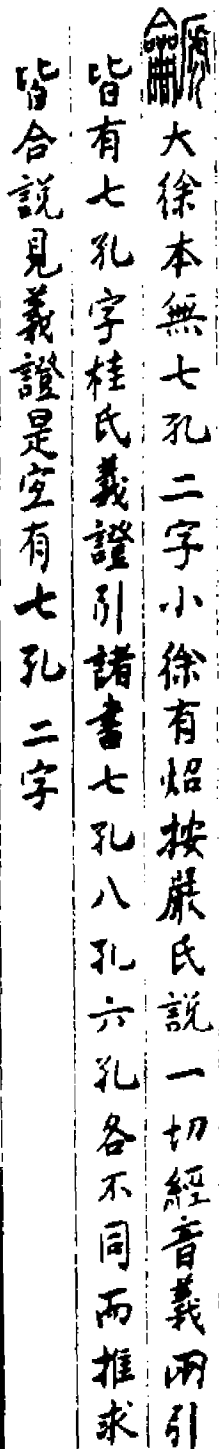 䶵大徐本無七孔二字小徐有炤按嚴氏説一切經音義兩引
皆有七孔字桂氏義證引諸書七孔八孔六孔各不同而推求
皆合説見義證是宐有七孔二字